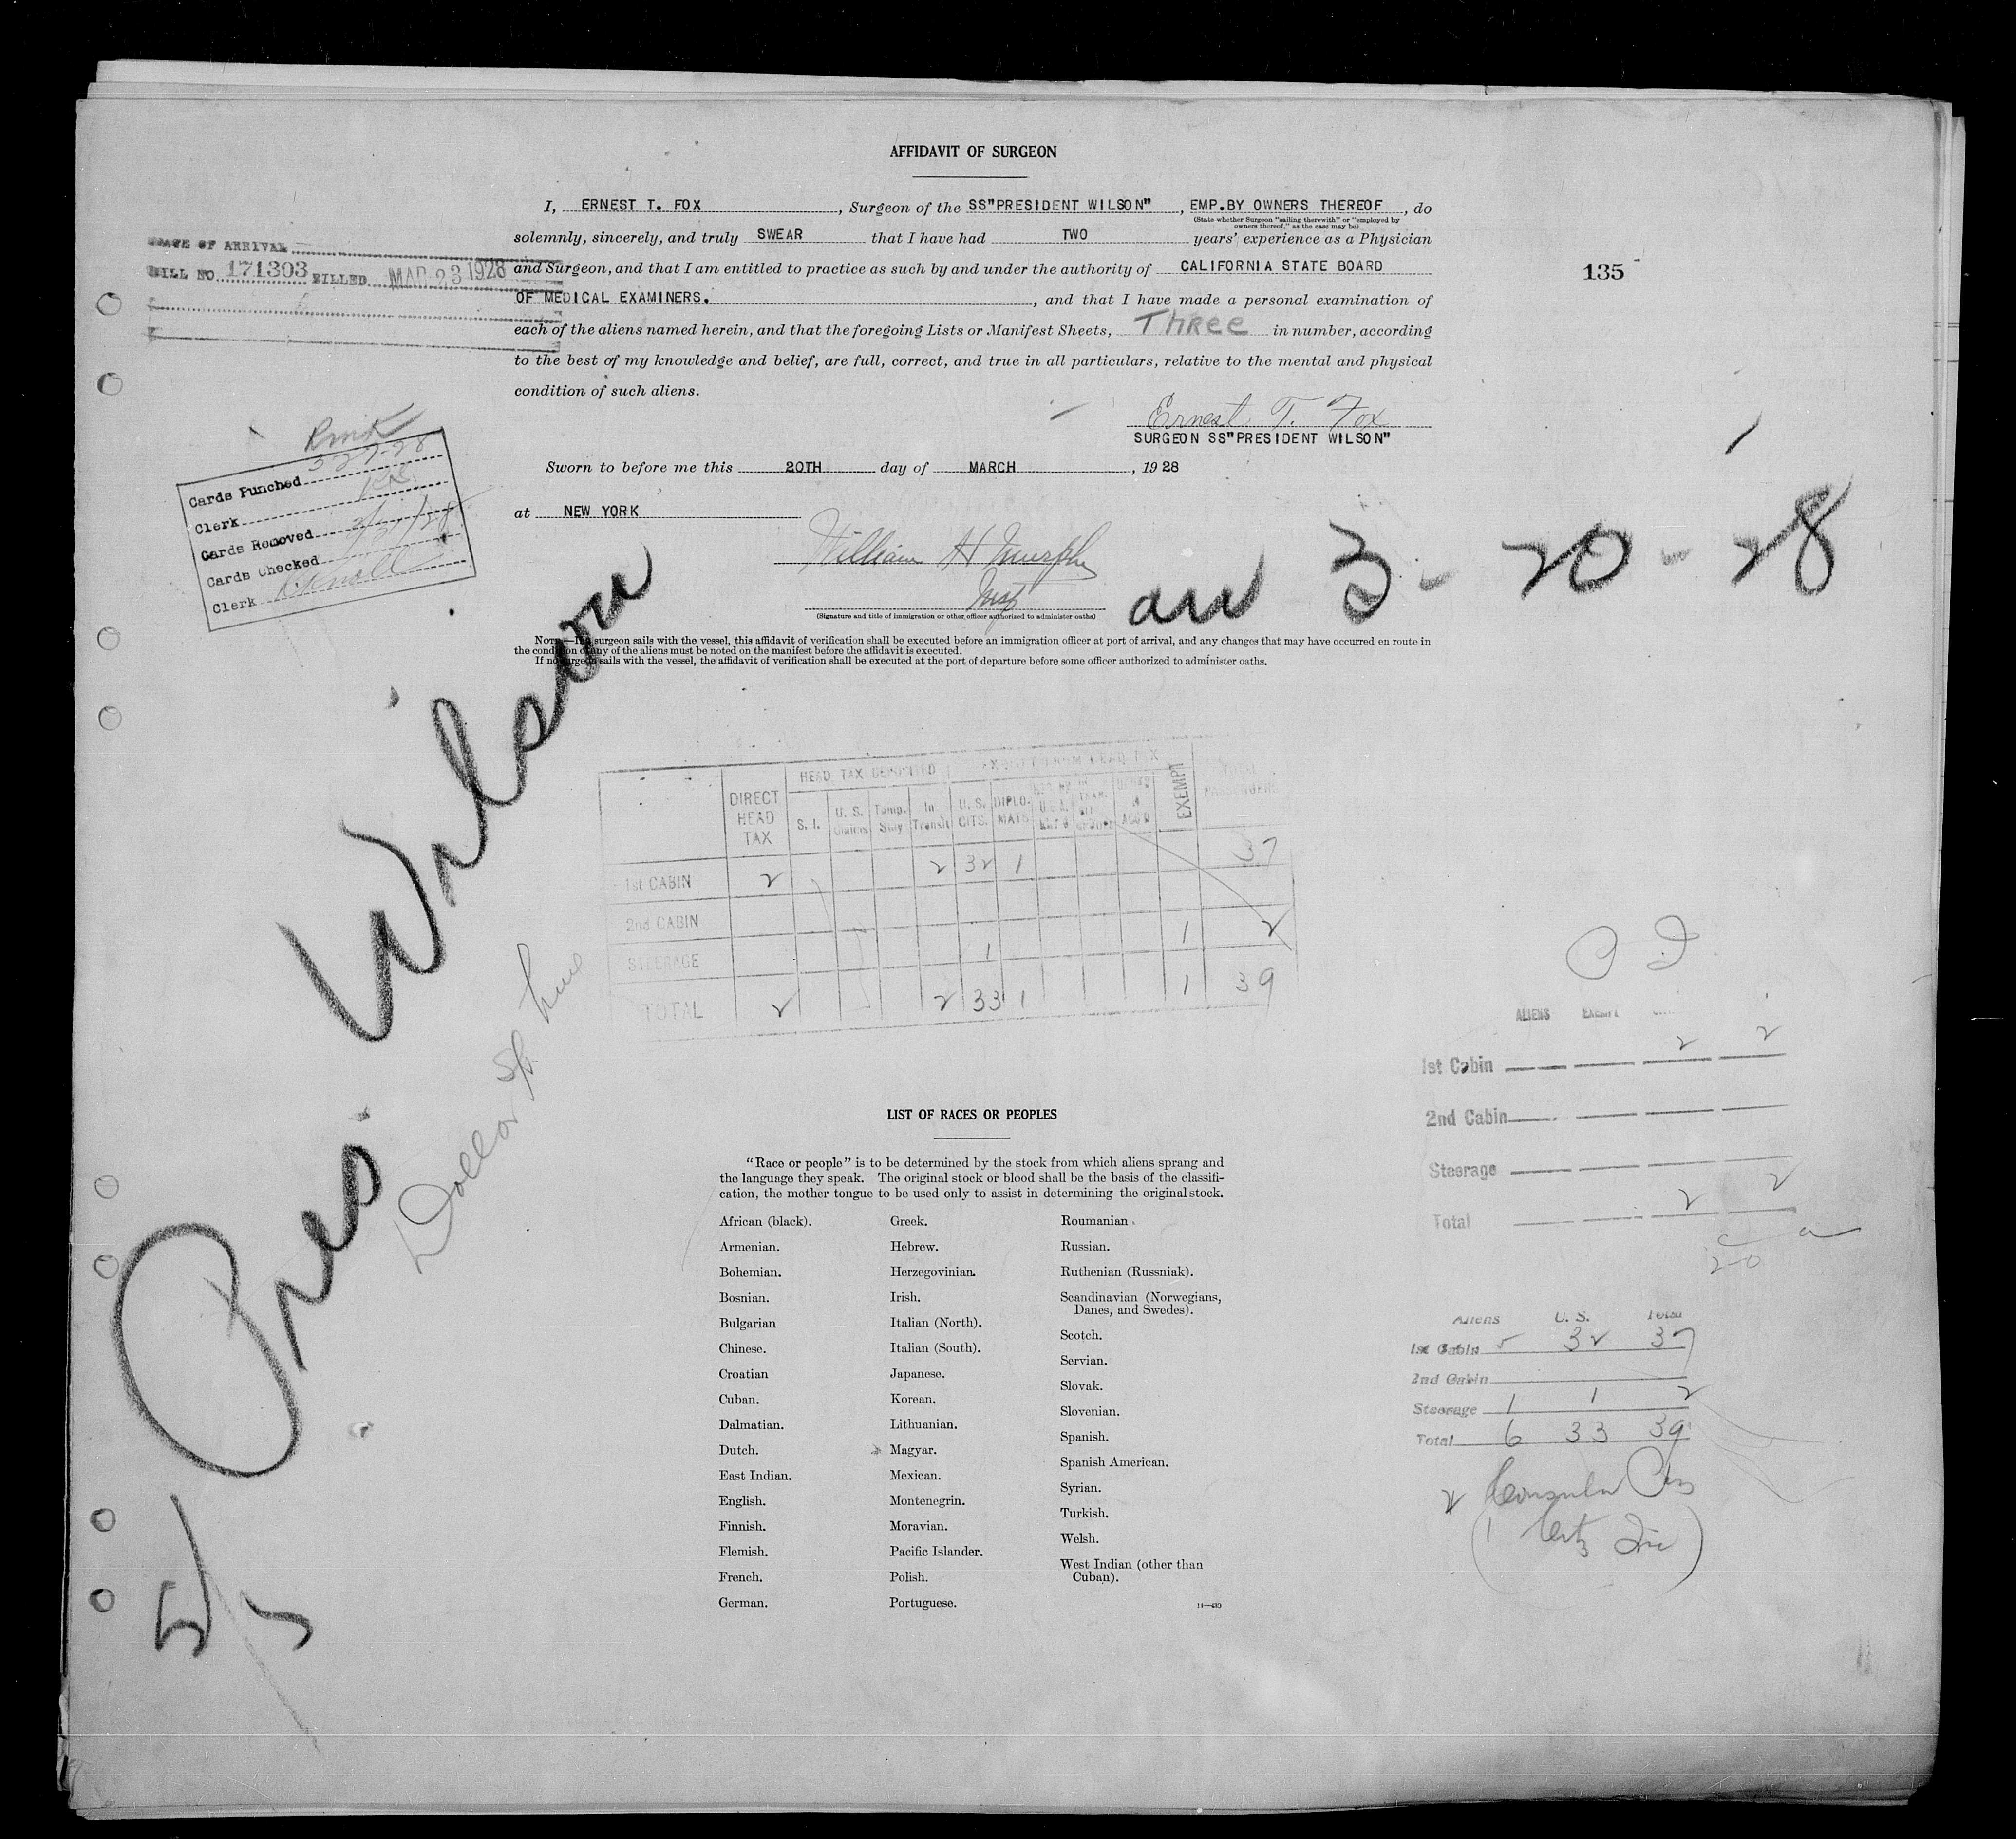 AFFIDAVIT OF SURGEON
I, ERNEST T. FOX, Surgeon of the SS"PRESIDENT WILSON", EMP.BY OWNERS THEREOF, do
(State whether Surgeon "sailing therewith" or "employed by
owners thereof," as the case may be)
solemnly, sincerely, and truly SWEAR that I have had TWO years' experience as a Physician
and Surgeon, and that I am entitled to practice as such by and under the authority of CALIFORNIA STATE BOARD
OF MEDICAL EXAMINERS., and that I have made a personal examination of
each of the aliens named herein, and that the foregoing Lists or Manifest Sheets, THREE in number, according
to the best of my knowledge and belief, are full, correct, and true in all particulars, relative to the mental and physical
condition of such aliens.
Ernest T. Fox
SURGEON SS"PRESIDENT WILSON"
Sworn to before me this 20TH day of MARCH, 1928
at NEW YORK
William H Murphy
Insp
(Signature and title of immigration or other officer authorized to administer oaths)
NOTE.—If a surgeon sails with the vessel, this affidavit of verification shall be executed before an immigration officer at port of arrival, and any changes that may have occurred en route in
the condition of any of the aliens must be noted on the manifest before the affidavit is executed.
If no surgeon sails with the vessel, the affidavit of verification shall be executed at the port of departure before some officer authorized to administer oaths.
OF ARRIVAL
BILL NO. 171303 BILLED MAR 23 1928
135
Cards Punched 3 27-28
Clerk
Cards Removed 3/27/28
Cards Checked
Clerk
arr 3-20-28
Pres. Wilson
Dollar SS Line
HEAD TAX DEPOSITED EXEMPT FROM HEAD TAX
DIRECT HEAD TAX S. I. U. S. Claims Temp. Stay In Transit U. S. CITS. DIPLO-MATS EXEMPT TOTAL PASSENGERS
1st CABIN 2 2 32 1 37
2nd CABIN
STEERAGE 1 1 2
TOTAL 2 2 33 1 1 39
ALIENS EXEMPT
1st Cabin 2 2
2nd Cabin
Steerage
Total 2 2
Aliens U. S. Total
1st Cabin 5 32 37
2nd Cabin
Steerage 1 1 2
Total 6 33 39
LIST OF RACES OR PEOPLES
"Race or people" is to be determined by the stock from which aliens sprang and
the language they speak. The original stock or blood shall be the basis of the classifi-
cation, the mother tongue to be used only to assist in determining the original stock.
African (black).
Armenian.
Bohemian.
Bosnian.
Bulgarian
Chinese.
Croatian
Cuban.
Dalmatian.
Dutch.
East Indian.
English.
Finnish.
Flemish.
French.
German.
Greek.
Hebrew.
Herzegovinian.
Irish.
Italian (North).
Italian (South).
Japanese.
Korean.
Lithuanian.
Magyar.
Mexican.
Montenegrin.
Moravian.
Pacific Islander.
Polish.
Portuguese.
Roumanian.
Russian.
Ruthenian (Russniak).
Scandinavian (Norwegians,
Danes, and Swedes).
Scotch.
Servian.
Slovak.
Slovenian.
Spanish.
Spanish American.
Syrian.
Turkish.
Welsh.
West Indian (other than
Cuban).